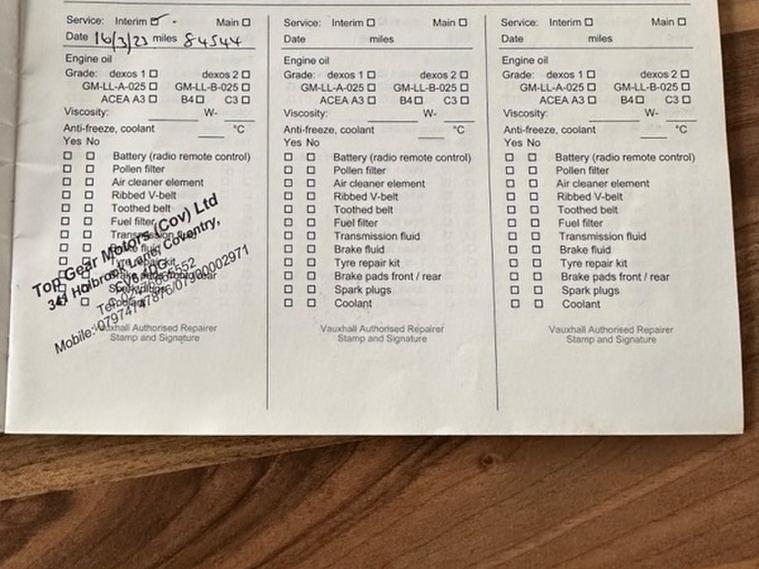 Service: Interim ☑ Main ☐
Date 16/3/23 miles 84544
Engine oil
Grade: dexos 1 ☐ dexos 2 ☐
GM-LL-A-025 ☐ GM-LL-B-025 ☐
ACEA A3 ☐ B4 ☐ C3 ☐
Viscosity: W-
Anti-freeze, coolant °C
Yes No
☐ ☐ Battery (radio remote control)
☐ ☐ Pollen filter
☐ ☐ Air cleaner element
☐ ☐ Ribbed V-belt
☐ ☐ Toothed belt
☐ ☐ Fuel filter
Transmission fluid
Brake fluid
Tyre repair kit
Top Gear Motors (Cov) Ltd
341 Holbrook Lane, Coventry,
Mobile: 07974747876/07900002971
Vauxhall Authorised Repairer
Stamp and Signature
Service: Interim ☐ Main ☐
Date miles
Engine oil
Grade: dexos 1 ☐ dexos 2 ☐
GM-LL-A-025 ☐ GM-LL-B-025 ☐
ACEA A3 ☐ B4 ☐ C3 ☐
Viscosity: W-
Anti-freeze, coolant °C
Yes No
☐ ☐ Battery (radio remote control)
☐ ☐ Pollen filter
☐ ☐ Air cleaner element
☐ ☐ Ribbed V-belt
☐ ☐ Toothed belt
☐ ☐ Fuel filter
☐ ☐ Transmission fluid
☐ ☐ Brake fluid
☐ ☐ Tyre repair kit
☐ ☐ Brake pads front / rear
☐ ☐ Spark plugs
☐ ☐ Coolant
Vauxhall Authorised Repairer
Stamp and Signature
Service: Interim ☐ Main ☐
Date miles
Engine oil
Grade: dexos 1 ☐ dexos 2 ☐
GM-LL-A-025 ☐ GM-LL-B-025 ☐
ACEA A3 ☐ B4 ☐ C3 ☐
Viscosity: W-
Anti-freeze, coolant °C
Yes No
☐ ☐ Battery (radio remote control)
☐ ☐ Pollen filter
☐ ☐ Air cleaner element
☐ ☐ Ribbed V-belt
☐ ☐ Toothed belt
☐ ☐ Fuel filter
☐ ☐ Transmission fluid
☐ ☐ Brake fluid
☐ ☐ Tyre repair kit
☐ ☐ Brake pads front / rear
☐ ☐ Spark plugs
☐ ☐ Coolant
Vauxhall Authorised Repairer
Stamp and Signature